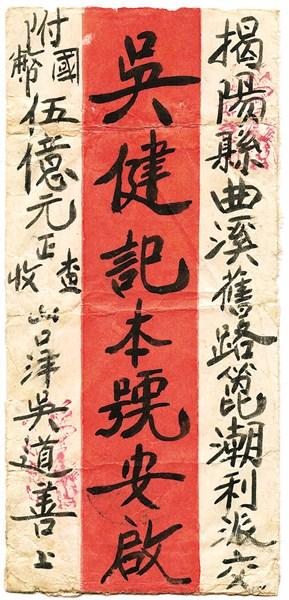 揭陽縣曲溪舊路箆潮利派交
吳健記本號安啟
付國幣伍億元正查收 山口津吳道善上